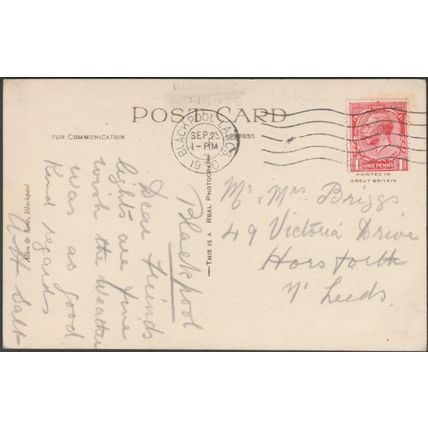 POST CARD
FOR COMMUNICATION
ADDRESS.
BLACKPOOL LANCS
SEP 23
1-PM
1930
ONE PENNY
PRINTED IN
GREAT BRITAIN
THIS IS A REAL PHOTOGRAPH
Allen & Sons, Blackpool
Blackpool
Dear Friends
lights are fine
wish the Weather
was as good
Kind regards
Salt
Mr Mrs Briggs
49 Victoria Drive
Horsforth
Nr Leeds.